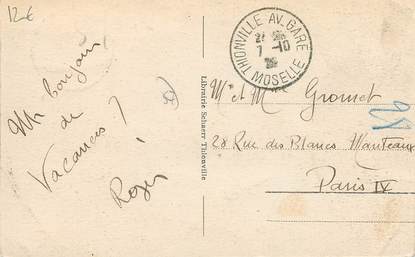 12€
Un bonjour
de
Vacances !
Roger
THIONVILLE AV. GARE
7 -10
MOSELLE
Librairie Schaerr Thionville
Mr et M Gromet
28 Rue des Blancs Manteaux
Paris IV